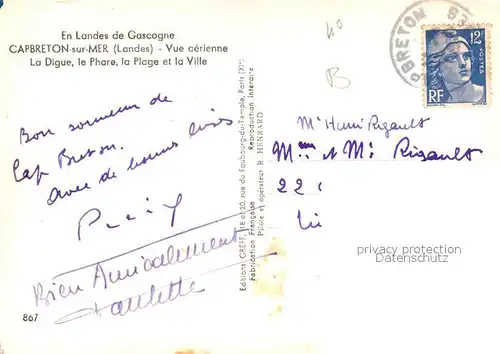 En Landes de Gascogne
CAPBRETON-sur-MER (Landes) - Vue aérienne
La Digue, le Phare, la Plage et la Ville
Bon souvenir de
Cap Breton.
avec de bonnes bises
Bien Amicalement
Paulette
867
Editions GREFF, 18 et 20, rue du Faubourg-du-Temple, Paris (XIe)
Fabrication Française Reproduction Interdite
Pilote et opérateur R. HENRARD
N°
B
PBRETON
12F
POSTES
RF
Mr Henri Rigault
Mme et Mr Rigault
22
privacy protection
Datenschutz